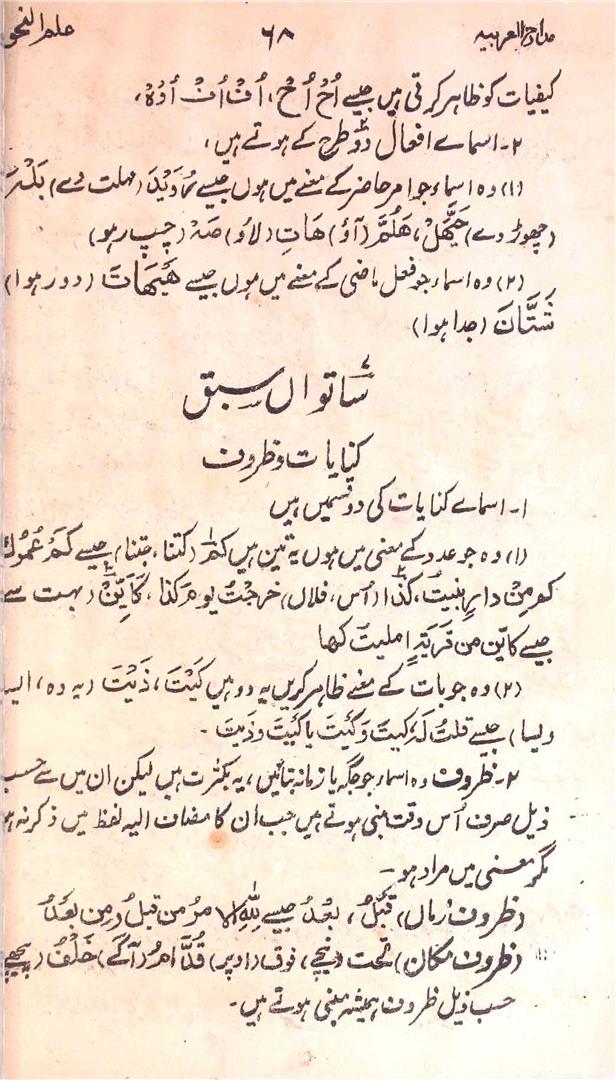 مدارج العربیہ ۶۸ علم النحو
کیفیات کو ظاہر کرتی ہیں جیسے اُحْ اُحْ، اُفْ اُفْ اُوْہْ،
۲۔ اسمائے افعال دو طرح کے ہوتے ہیں،
(۱) وہ اسماء جو امر حاضر کے معنے میں ہوں جیسے رُوَیْدَ (مہلت دے) بَلْہَ
(چھوڑ دے) حَیَّھَلْ، ھَلُمَّ (آؤ) ھَاتِ (لاؤ) صَہْ (چپ رہو)
(۲) وہ اسماء جو فعل ماضی کے معنے میں ہوں جیسے ھَیْھَاتَ (دور ہوا)
شَتَّانَ (جدا ہوا)
ساتواں سبق
کنایات و ظروف
۱۔ اسمائے کنایات کی دو قسمیں ہیں
(۱) وہ جو عدد کے معنی میں ہوں یہ تین ہیں کَمْ (کتنا، جتنا) جیسے کَمْ عُمُرُكَ
کم مِنْ دارٍ بنیتُ، کَذَا (اُس، فلاں) خرجتُ یوم کذا، کَاَیِّنْ (بہت سے
جیسے کاَیّن من قَریَۃٍ املیتُ لھا
(۲) وہ جو بات کے معنے ظاہر کریں یہ دو ہیں کَیْتَ، ذَیْتَ (یہ وہ، ایسا
ویسا) جیسے قلتُ لَہٗ کَیتَ وَکَیْتَ یا کَیْتَ وَذَیتَ۔
۲۔ ظروف وہ اسماء جو جگہ یا زمانہ بتائیں، یہ بکثرت ہیں لیکن ان میں سے حسب
ذیل صرف اُس وقت مبنی ہوتے ہیں جب ان کا مضاف الیہ لفظ میں ذکر نہ ہو
مگر معنی میں مراد ہو۔
(ظروف زماں) قَبْلُ، بَعْدُ جیسے لِلّٰہِ الامرُ من قبلُ ومن بَعْدُ
(ظروف مکان) تحت (نیچے)، فوق (اوپر) قُدَّامُ (آگے) خَلْفُ (پیچھے)
حسب ذیل ظروف ہمیشہ مبنی ہوتے ہیں۔